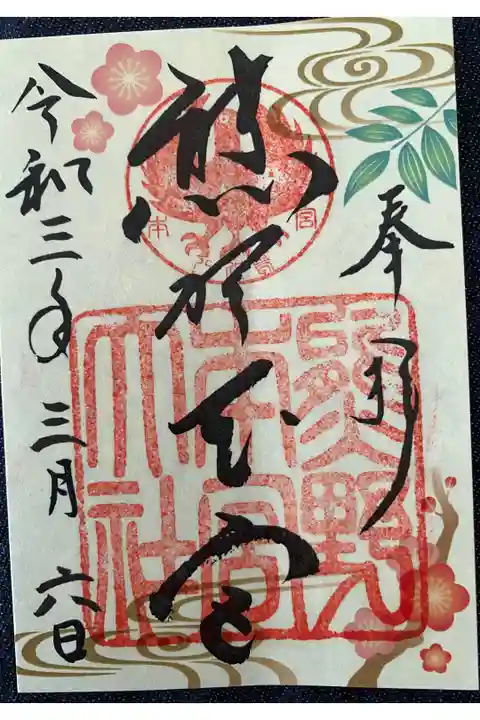 奉拝
熊野本宮
令和三年三月六日
熊野
本宮
大社